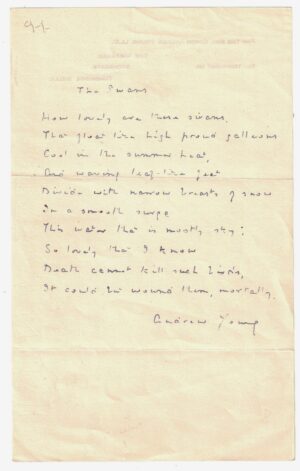 The Swans
How lovely are these swans,
That float like high proud galleons
Cool in the summer heat,
And waving leaf-like feet
Divide with narrow breasts of snow
In a smooth surge
This water that is mostly sky;
So lovely that I know
Death cannot kill such birds,
It could but wound them, mortally.
Andrew Young